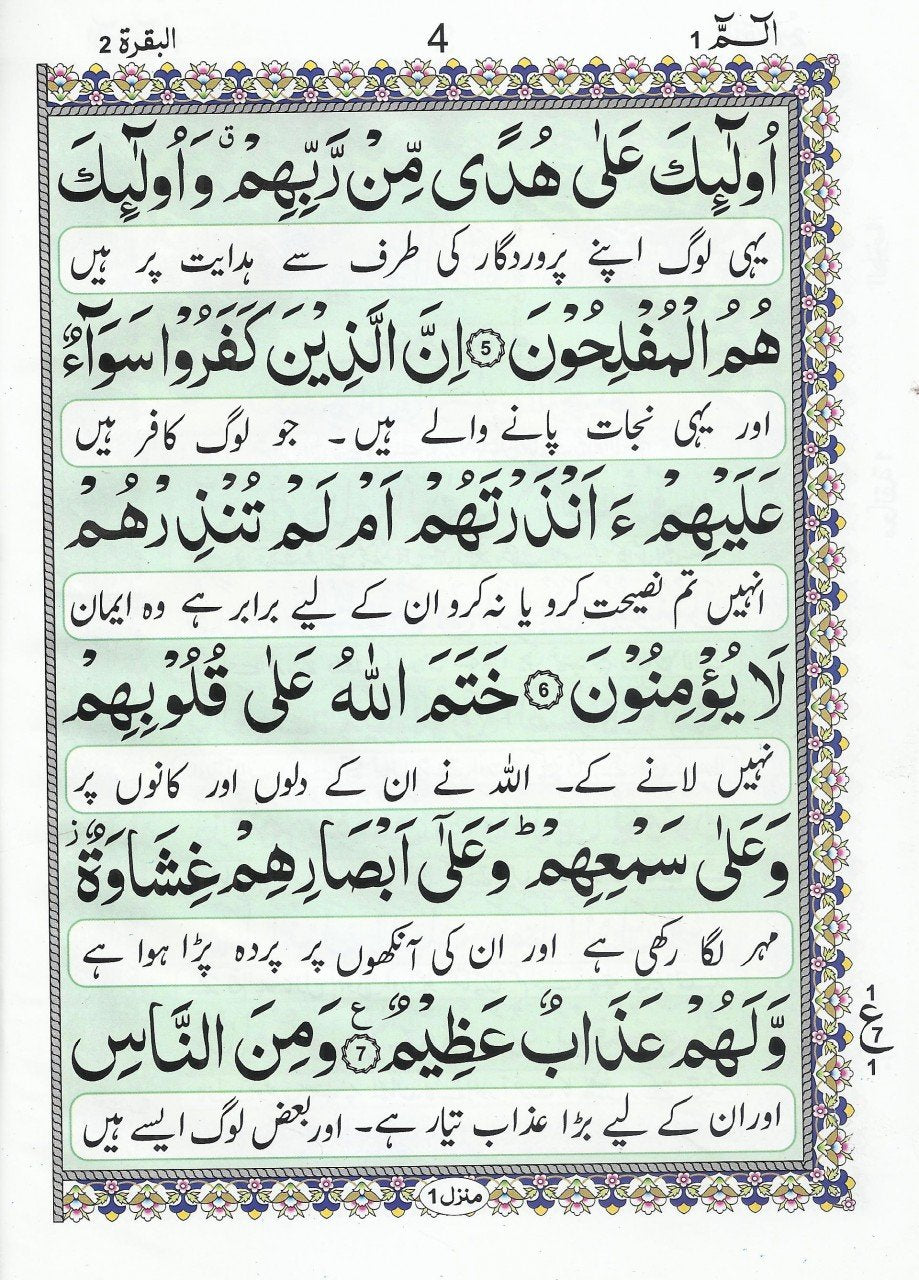 الٓـمّٓ 1 4 البقرة 2
اُولٰٓئِكَ عَلٰى هُدًى مِّنْ رَّبِّهِمْ ۗ وَاُولٰٓئِكَ
یہی لوگ اپنے پروردگار کی طرف سے ہدایت پر ہیں
هُمُ الْمُفْلِحُوْنَ 5 اِنَّ الَّذِيْنَ كَفَرُوْا سَوَآءٌ
اور یہی نجات پانے والے ہیں۔ جو لوگ کافر ہیں
عَلَيْهِمْ ءَ اَنْذَرْتَهُمْ اَمْ لَمْ تُنْذِرْهُمْ
انہیں تم نصیحت کرو یا نہ کرو ان کے لیے برابر ہے وہ ایمان
لَا يُؤْمِنُوْنَ 6 خَتَمَ اللّٰهُ عَلٰى قُلُوْبِهِمْ
نہیں لانے کے۔ اللہ نے ان کے دلوں اور کانوں پر
وَعَلٰى سَمْعِهِمْ ؕ وَعَلٰٓى اَبْصَارِهِمْ غِشَاوَةٌ ز
مہر لگا رکھی ہے اور ان کی آنکھوں پر پردہ پڑا ہوا ہے
وَّلَهُمْ عَذَابٌ عَظِيْمٌ 7 ع وَمِنَ النَّاسِ
1
ع
7
1
اور ان کے لیے بڑا عذاب تیار ہے۔ اور بعض لوگ ایسے ہیں
منزل 1